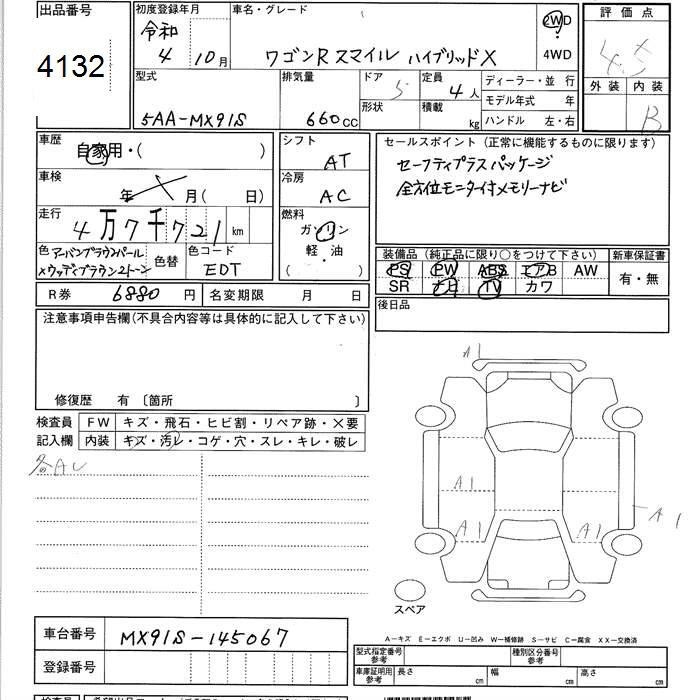 出品番号
4132
初度登録年月
令和
4 10月
車名・グレード
ワゴンR スマイル ハイブリッドX
2WD
4WD
評価点
4.5
外装 内装
B
型式
5AA-MX91S
排気量
660cc
ドア 5
形状
定員 4人
積載 kg
ディーラー・並 行
モデル年式 年
ハンドル 左・右
車歴
自家用・( )
車検
年 月( 日)
走行
4万7千721km
色 アーバンブラウンパール
×ウッディブラウン2トーン
色替
色コード
EDT
シフト
AT
冷房
AC
燃料
ガソリン
軽・油
( )
セールスポイント(正常に機能するものに限ります)
セーフティプラスパッケージ
全方位モニター付メモリーナビ
装備品(純正品に限り○をつけて下さい)
PS PW ABS エアB AW
SR ナビ TV カワ
新車保証書
有・無
後日品
R券 6880円
名変期限 月 日
注意事項申告欄(不具合内容等は具体的に記入して下さい)
修復歴 有〔箇所 〕
検査員
記入欄
FW キズ・飛石・ヒビ割・リペア跡・×要
内装 キズ・汚レ・コゲ・穴・スレ・キレ・破レ
各AU
A1
A1
A1
A1
A1
スペア
A-キズ E-エクボ U-凹み W-補修跡 S-サビ C-腐食 XX-交換済
車台番号
MX91S-145067
登録番号
型式指定番号
参考
種別区分番号
参考
車庫証明用
参考
長さ cm
幅 cm
高さ cm